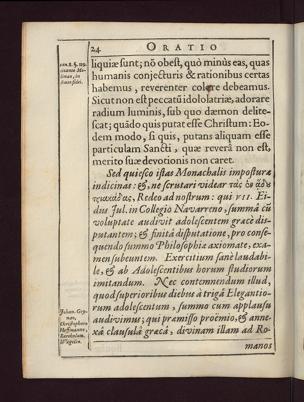 24 ORATIO
liquiæ sunt; nō obest, quò minùs eas, quas
humanis conjecturis & rationibus certas
habemus, reverenter colere debeamus.
Sicut non est peccatū idololatriæ, adorare
radium luminis, sub quo dæmon delite-
scat; quādo quis putat esse Christum: Eo-
dem modo, si quis, putans aliquam esse
particulam Sancti, quæ reverâ non est,
merito suæ devotionis non caret.
Sed quiesco istas Monachalis imposturæ
indicinas: &, ne scrutari videar τὰς ἐν ᾅδου
Redeo ad nostrum: qui VII. Ei-
dus Jul. in Collegio Navarreno, summâ cū
voluptate audivit adolescentem græcè dis-
putantem; & finitâ disputatione, pro conse-
quendo summo Philosophiæ axiomate, exa-
men subeuntem. Exercitium sanè laudabi-
le, & ab Adolescentibus horum studiorum
imitandum. Nec contemnendum illud,
quod superioribus diebus à trigâ Elegantio-
rum adolescentum, summo cum applausu
audivimus; qui præmisso proœmio, & anne-
xâ clausulâ græcâ, divinam illam ad Ro-
manos
Christophorus
Hoffmannus,